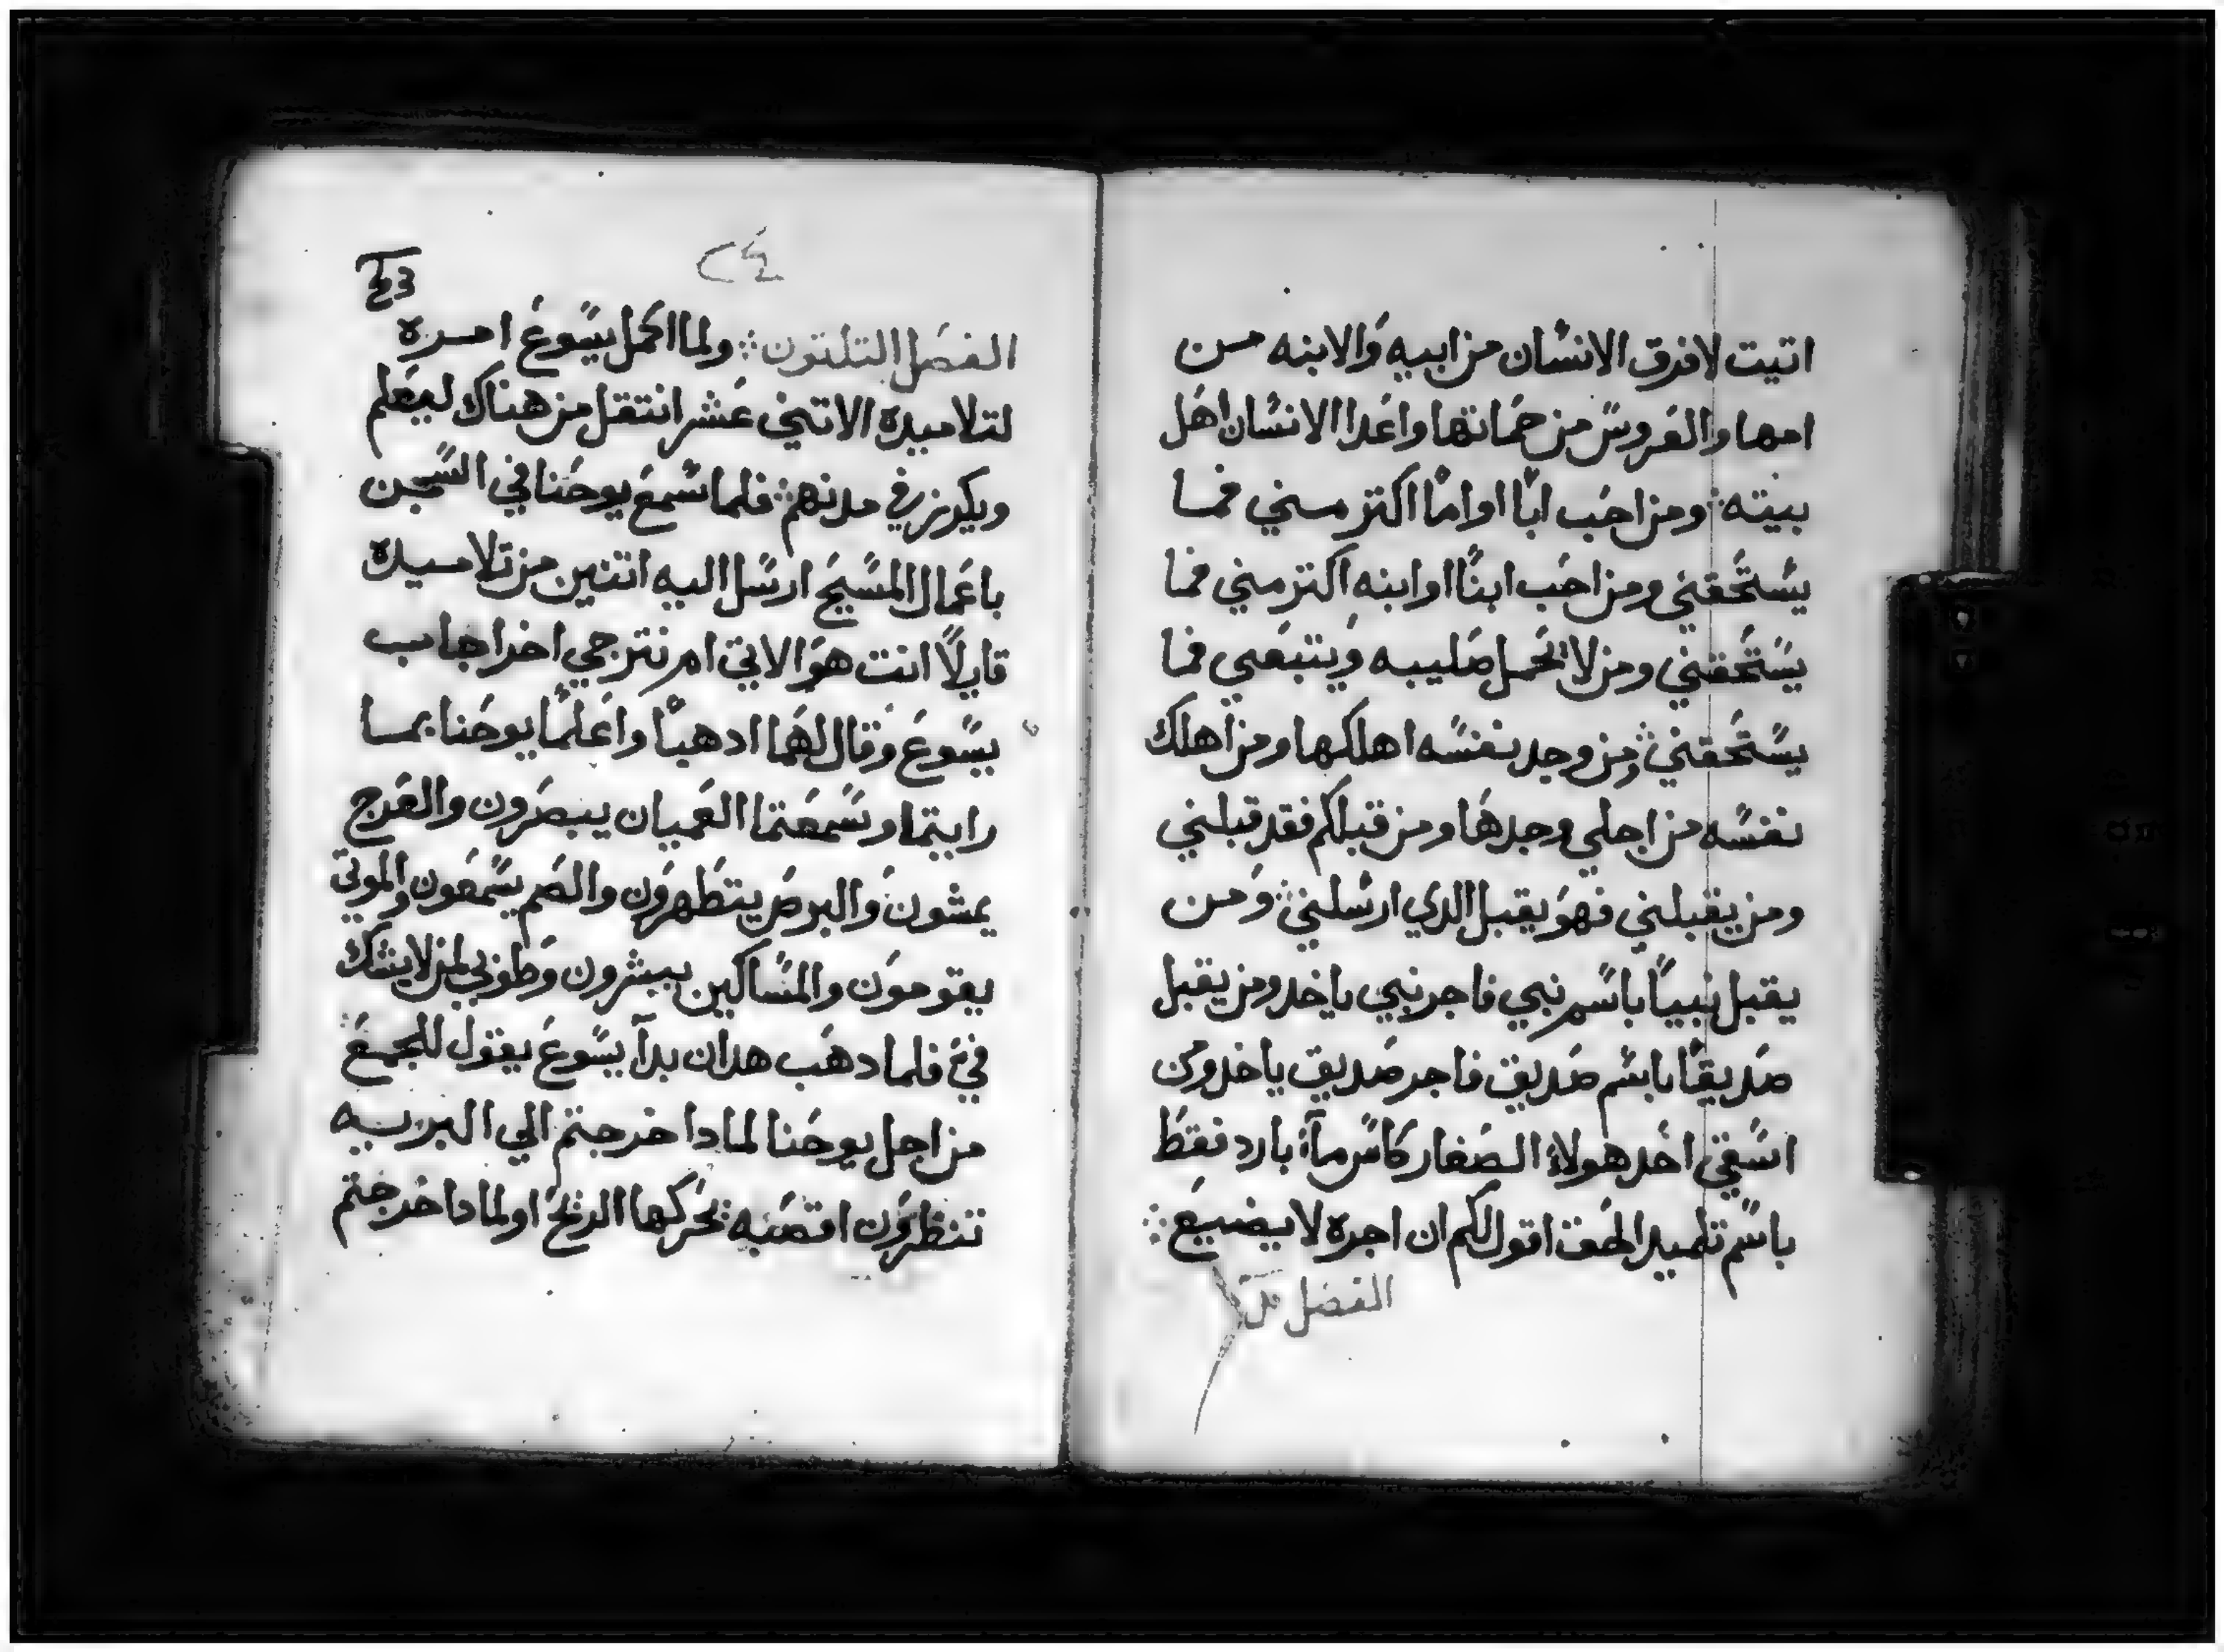 اتيت لافرق الانسان من ابيه والابنه من
امها والعروس من حماتها واعدا الانسان اهل
بيته ومن احب ابا او اما اكتر مني فما
يستحقني ومن احب ابنا او ابنه اكتر مني فما
يستحقني ومن لا يحمل صليبه ويتبعني فما
يستحقني ومن وجد نفسه اهلكها ومن اهلك
نفسه من اجلي وجدها ومن قبلكم فقد قبلني
ومن يقبلني فهو يقبل الدي ارسلني ومن
يقبل نبيا باسم نبي فاجر نبي ياخد ومن يقبل
صديقا باسم صديق فاجر صديق ياخد ومن
اسقي احد هولاء الصغار كاس مآء بارد فقط
باسم تلميد الحق اقول لكم ان اجره لا يضيع
الفصل
الفصل التلتون ولما اكمل يسوع امره
لتلاميده الاتني عشر انتقل من هناك ليعلم
ويكرز في مدنهم فلما سمع يوحنا في السجن
باعمال المسيح ارسل اليه اتنين من تلاميده
قايلا انت هو الاتي ام نترجي اخر اجاب
يسوع وقال لهما ادهبا واعلما يوحنا بما
رايتما وسمعتما العميان يبصرون والعرج
يمشون والبرص يتطهرون والصم يسمعون والموتي
يقومون والمساكين يبشرون وطوبي لمن لا يشك
في فلما دهب هدان بدآ يسوع يقول للجمع
من اجل يوحنا لمادا خرجتم الي البريه
تنظرون اقصبه تحركها الريح او لمادا خرجتم